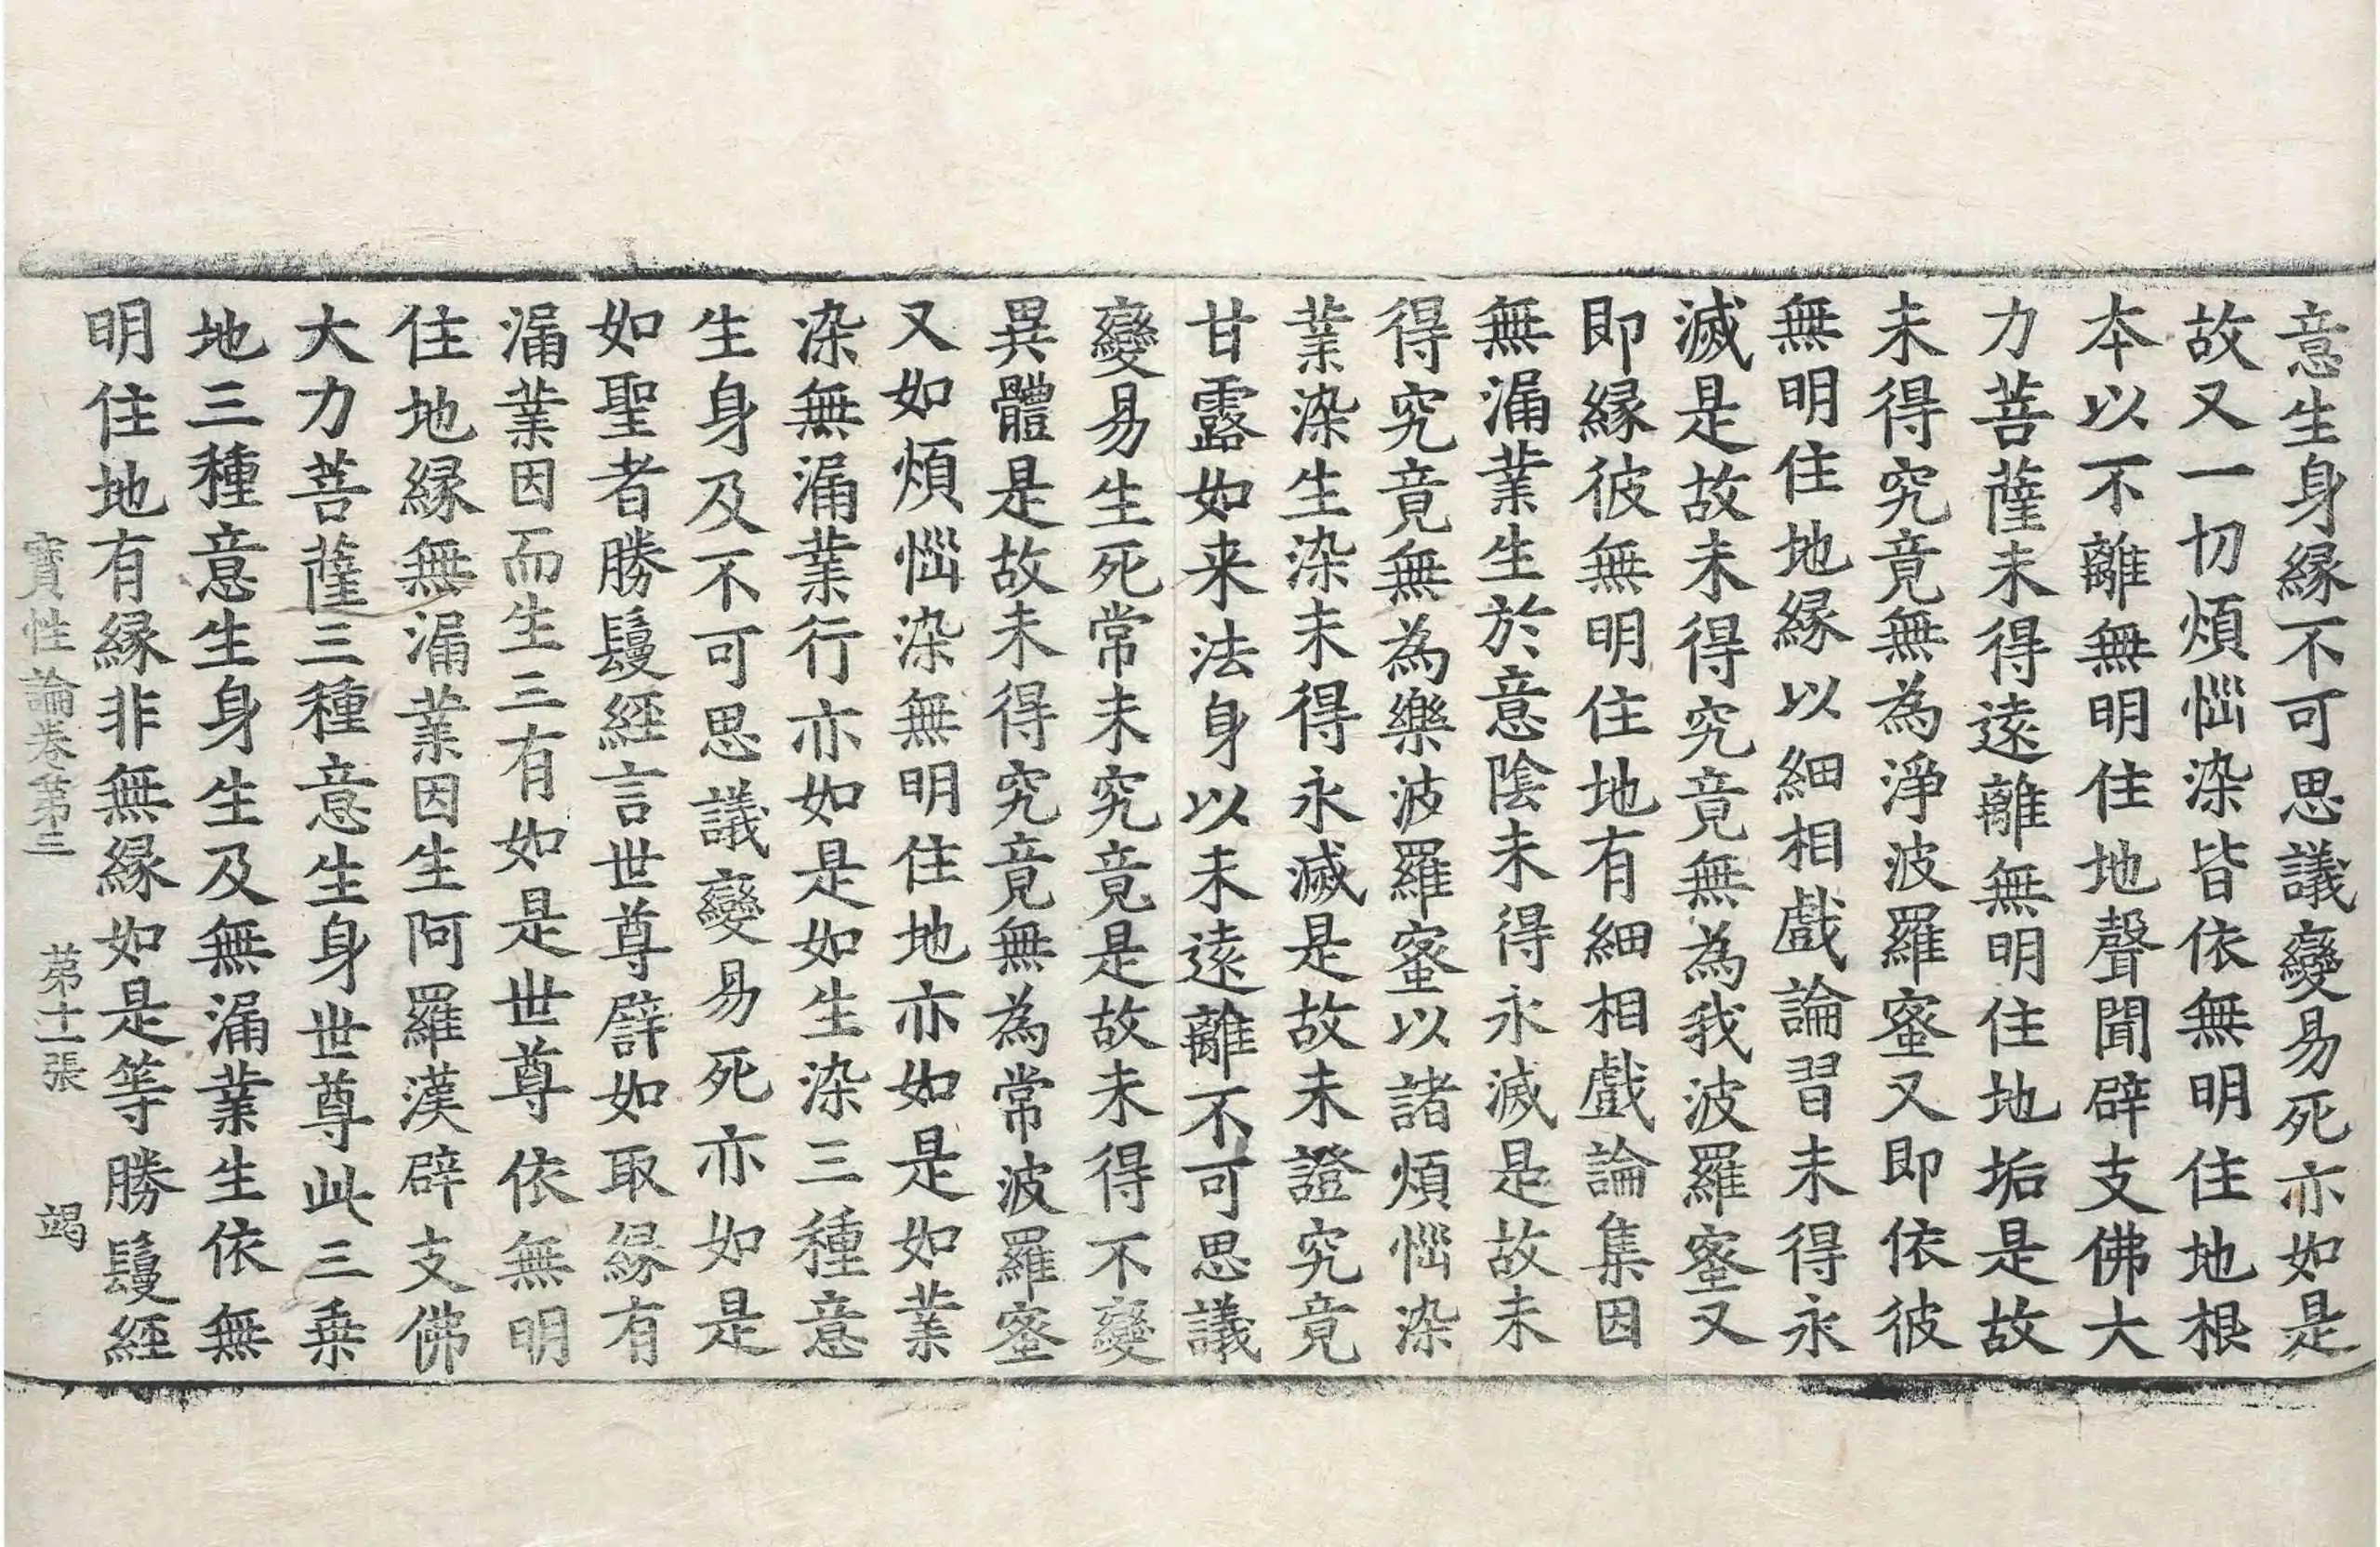 意生身縁不可思議變易死亦如是
故又一切煩惱染皆依無明住地根
本以不離無明住地聲聞辟支佛大
力菩薩未得遠離無明住地垢是故
未得究竟無為淨波羅蜜又即依彼
無明住地縁以細相戲論習未得永
滅是故未得究竟無為我波羅蜜又
即縁彼無明住地有細相戲論集因
無漏業生於意陰未得永滅是故未
得究竟無為樂波羅蜜以諸煩惱染
業染生染未得永滅是故未證究竟
甘露如来法身以未遠離不可思議
變易生死常未究竟是故未得不變
異體是故未得究竟無為常波羅蜜
又如煩惱染無明住地亦如是如業
染無漏業行亦如是如生染三種意
生身及不可思議變易死亦如是
如聖者勝鬘經言世尊譬如取縁有
漏業因而生三有如是世尊依無明
住地縁無漏業因生阿羅漢辟支佛
大力菩薩三種意生身世尊此三乗
地三種意生身生及無漏業生依無
明住地有縁非無縁如是等勝鬘經
寶性論卷第三　第十一張　竭